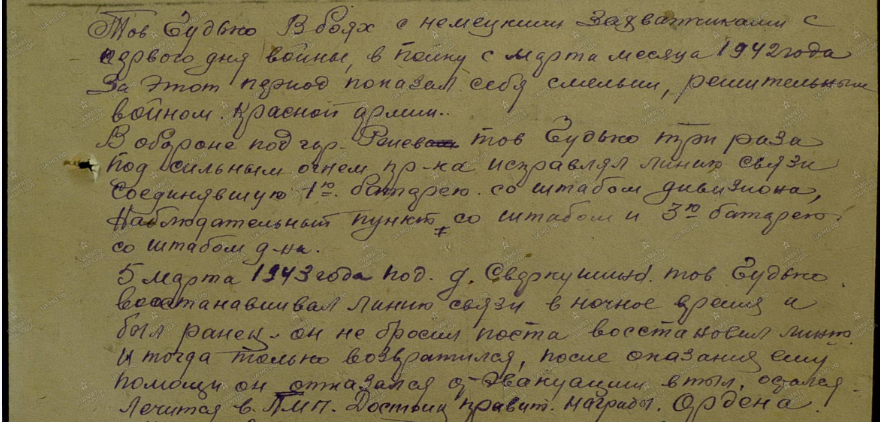 Тов Будько В боях с немецкими захватчиками с
первого дня войны, в полку с марта месяца 1942 года
За этот период показал себя смелым, решительным
войном. Красной армии..
В обороне под гор. тов Будько три раза
под сильным огнем пр-ка исправлял линию связи
соединявшую 1ю. батарею. со штабом дивизиона,
Наблюдательный пункт со штабом и 3ю батарею.
со штабом д-на.
5 марта 1943 года под. д. тов Будько.
восстанавливал линию связи в ночное время и
был ранен. он не бросил поста восстановил линию.
и тогда только возвратился, после оказания ему
помощи он отказался от эвакуации в тыл. остался
лечится в. ПМП. Достоин правит. награды. Ордена.